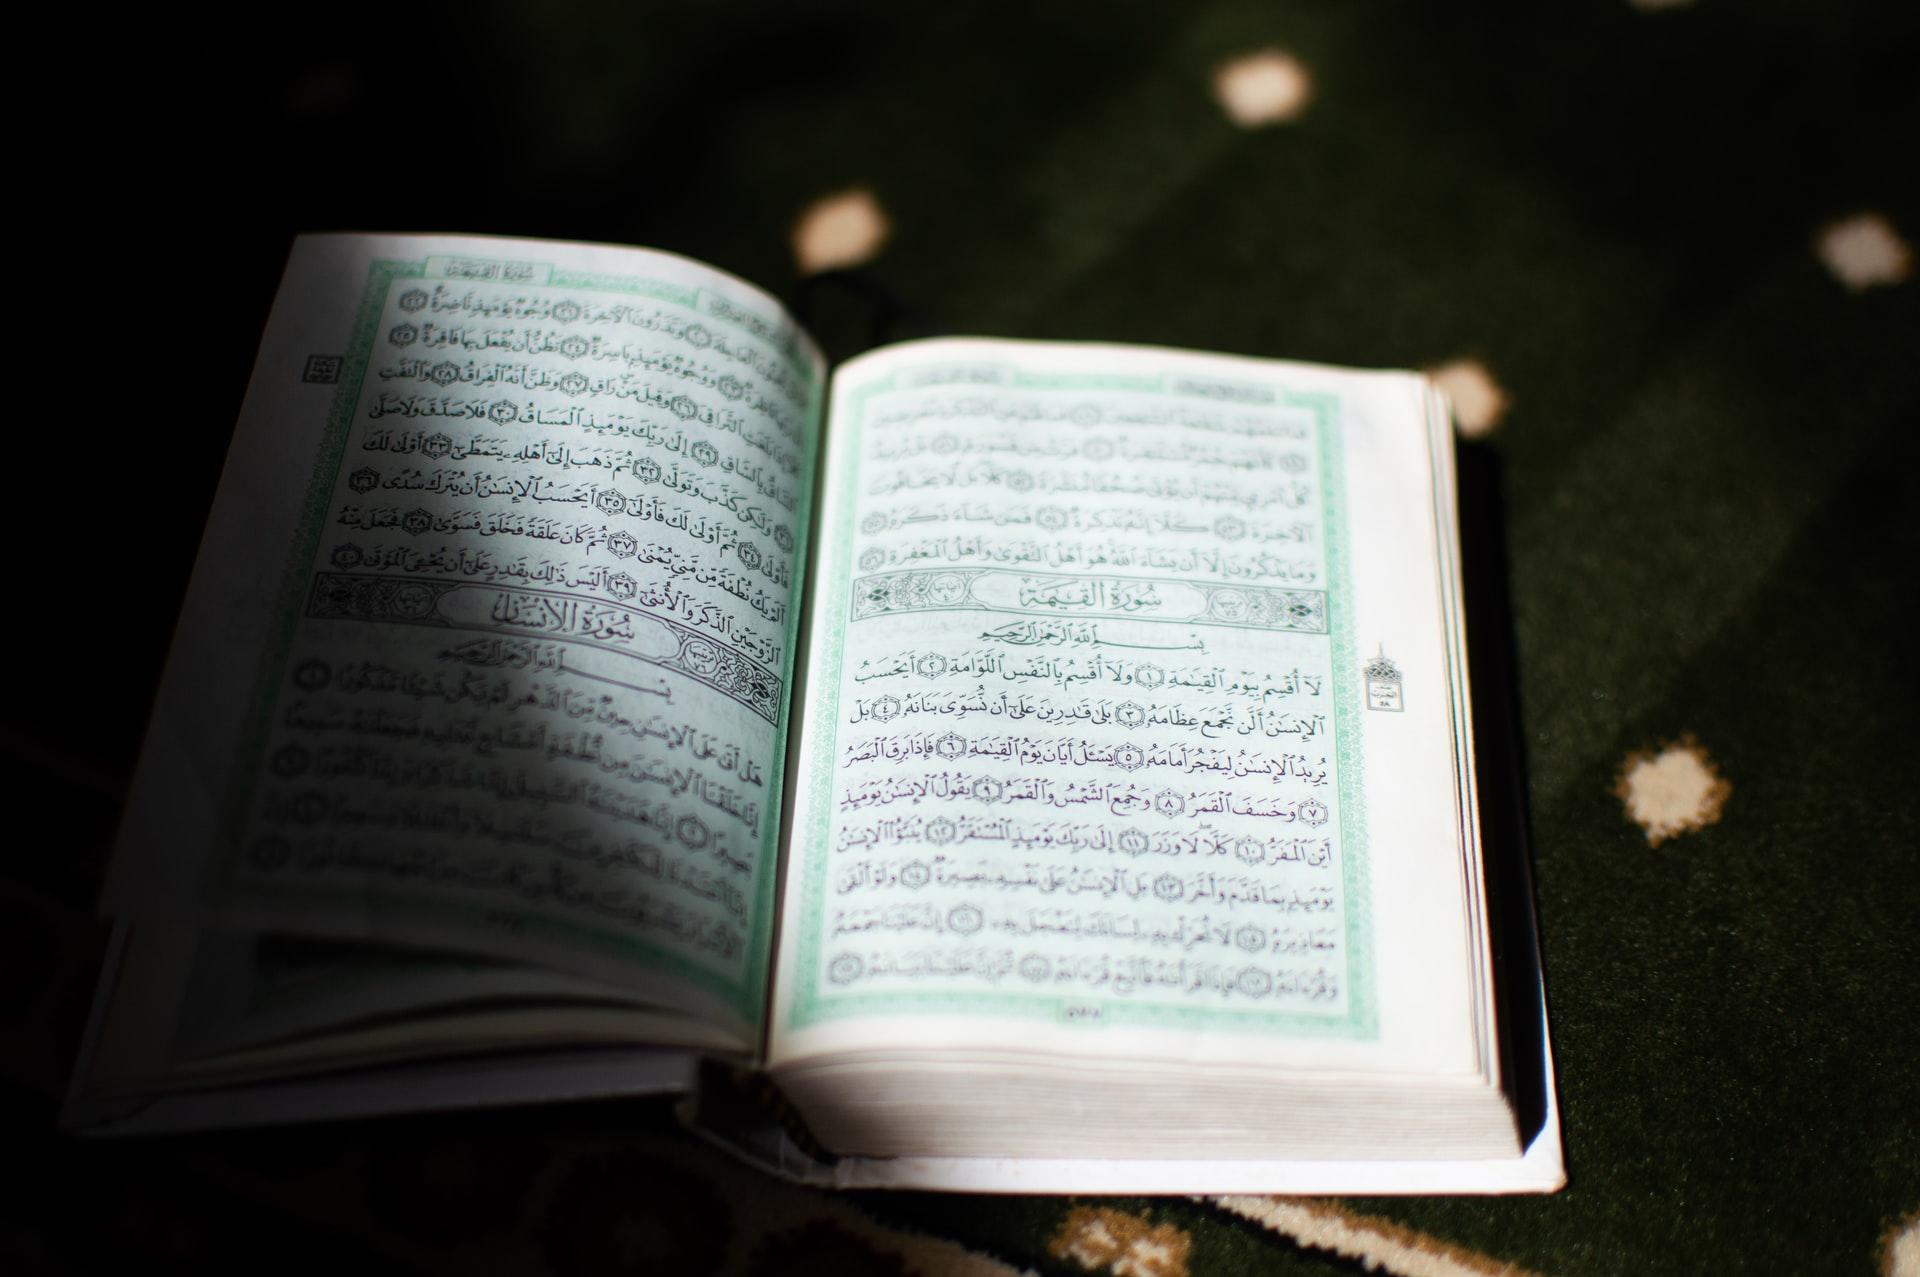 كُلُّ ٱمْرِئٍ مِّنْهُمْ أَن يُؤْتَىٰ صُحُفًا مُّنَشَّرَةً ۝٥٢ كَلَّا بَل لَّا يَخَافُونَ
ٱلْآخِرَةَ ۝٥٣ كَلَّا إِنَّهُۥ تَذْكِرَةٌ ۝٥٤ فَمَن شَآءَ ذَكَرَهُۥ ۝٥٥
وَمَا يَذْكُرُونَ إِلَّآ أَن يَشَآءَ ٱللَّهُ هُوَ أَهْلُ ٱلتَّقْوَىٰ وَأَهْلُ ٱلْمَغْفِرَةِ ۝٥٦
سُورَةُ ٱلْقِيَٰمَةِ
بِسْمِ ٱللَّهِ ٱلرَّحْمَٰنِ ٱلرَّحِيمِ
لَآ أُقْسِمُ بِيَوْمِ ٱلْقِيَٰمَةِ ۝١ وَلَآ أُقْسِمُ بِٱلنَّفْسِ ٱللَّوَّامَةِ ۝٢ أَيَحْسَبُ
ٱلْإِنسَٰنُ أَلَّن نَّجْمَعَ عِظَامَهُۥ ۝٣ بَلَىٰ قَٰدِرِينَ عَلَىٰٓ أَن نُّسَوِّىَ بَنَانَهُۥ ۝٤ بَلْ
يُرِيدُ ٱلْإِنسَٰنُ لِيَفْجُرَ أَمَامَهُۥ ۝٥ يَسْـَٔلُ أَيَّانَ يَوْمُ ٱلْقِيَٰمَةِ ۝٦ فَإِذَا بَرِقَ ٱلْبَصَرُ
۝٧ وَخَسَفَ ٱلْقَمَرُ ۝٨ وَجُمِعَ ٱلشَّمْسُ وَٱلْقَمَرُ ۝٩ يَقُولُ ٱلْإِنسَٰنُ يَوْمَئِذٍ
أَيْنَ ٱلْمَفَرُّ ۝١٠ كَلَّا لَا وَزَرَ ۝١١ إِلَىٰ رَبِّكَ يَوْمَئِذٍ ٱلْمُسْتَقَرُّ ۝١٢ يُنَبَّؤُا۟ ٱلْإِنسَٰنُ
يَوْمَئِذٍۭ بِمَا قَدَّمَ وَأَخَّرَ ۝١٣ بَلِ ٱلْإِنسَٰنُ عَلَىٰ نَفْسِهِۦ بَصِيرَةٌ ۝١٤ وَلَوْ أَلْقَىٰ
مَعَاذِيرَهُۥ ۝١٥ لَا تُحَرِّكْ بِهِۦ لِسَانَكَ لِتَعْجَلَ بِهِۦٓ ۝١٦ إِنَّ عَلَيْنَا جَمْعَهُۥ
وَقُرْءَانَهُۥ ۝١٧ فَإِذَا قَرَأْنَٰهُ فَٱتَّبِعْ قُرْءَانَهُۥ ۝١٨ ثُمَّ إِنَّ عَلَيْنَا بَيَانَهُۥ ۝١٩
سُورَةُ القِيَامَة
ٱلْعَاجِلَةَ ۝٢٠ وَتَذَرُونَ ٱلْآخِرَةَ ۝٢١ وُجُوهٌ يَوْمَئِذٍ نَّاضِرَةٌ ۝٢٢
نَاظِرَةٌ ۝٢٣ وَوُجُوهٌ يَوْمَئِذٍۭ بَاسِرَةٌ ۝٢٤ تَظُنُّ أَن يُفْعَلَ بِهَا فَاقِرَةٌ ۝٢٥
بَلَغَتِ ٱلتَّرَاقِىَ ۝٢٦ وَقِيلَ مَنْ رَاقٍ ۝٢٧ وَظَنَّ أَنَّهُ ٱلْفِرَاقُ ۝٢٨ وَٱلْتَفَّتِ
ٱلسَّاقُ بِٱلسَّاقِ ۝٢٩ إِلَىٰ رَبِّكَ يَوْمَئِذٍ ٱلْمَسَاقُ ۝٣٠ فَلَا صَدَّقَ وَلَا صَلَّىٰ
۝٣١ وَلَٰكِن كَذَّبَ وَتَوَلَّىٰ ۝٣٢ ثُمَّ ذَهَبَ إِلَىٰٓ أَهْلِهِۦ يَتَمَطَّىٰٓ ۝٣٣ أَوْلَىٰ لَكَ
فَأَوْلَىٰ ۝٣٤ ثُمَّ أَوْلَىٰ لَكَ فَأَوْلَىٰٓ ۝٣٥ أَيَحْسَبُ ٱلْإِنسَٰنُ أَن يُتْرَكَ سُدًى ۝٣٦
أَلَمْ يَكُ نُطْفَةً مِّن مَّنِىٍّ يُمْنَىٰ ۝٣٧ ثُمَّ كَانَ عَلَقَةً فَخَلَقَ فَسَوَّىٰ ۝٣٨ فَجَعَلَ مِنْهُ
ٱلزَّوْجَيْنِ ٱلذَّكَرَ وَٱلْأُنثَىٰٓ ۝٣٩ أَلَيْسَ ذَٰلِكَ بِقَٰدِرٍ عَلَىٰٓ أَن يُحْـِۧىَ ٱلْمَوْتَىٰ ۝٤٠
سُورَةُ ٱلْإِنسَانِ
بِسْمِ ٱللَّهِ ٱلرَّحْمَٰنِ ٱلرَّحِيمِ
هَلْ أَتَىٰ عَلَى ٱلْإِنسَٰنِ حِينٌ مِّنَ ٱلدَّهْرِ لَمْ يَكُن شَيْـًٔا مَّذْكُورًا ۝١
إِنَّا خَلَقْنَا ٱلْإِنسَٰنَ مِن نُّطْفَةٍ أَمْشَاجٍ نَّبْتَلِيهِ فَجَعَلْنَٰهُ سَمِيعًۢا
بَصِيرًا ۝٢ إِنَّا هَدَيْنَٰهُ ٱلسَّبِيلَ إِمَّا شَاكِرًا وَإِمَّا كَفُورًا ۝٣